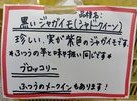 品種名:
黒いジャガイモ(シャドークイーン)
珍しい、実が紫色のジャガイモです
ふつうの芋と味や扱い同じです
ブロッコリー
ふつうのメークインもあります